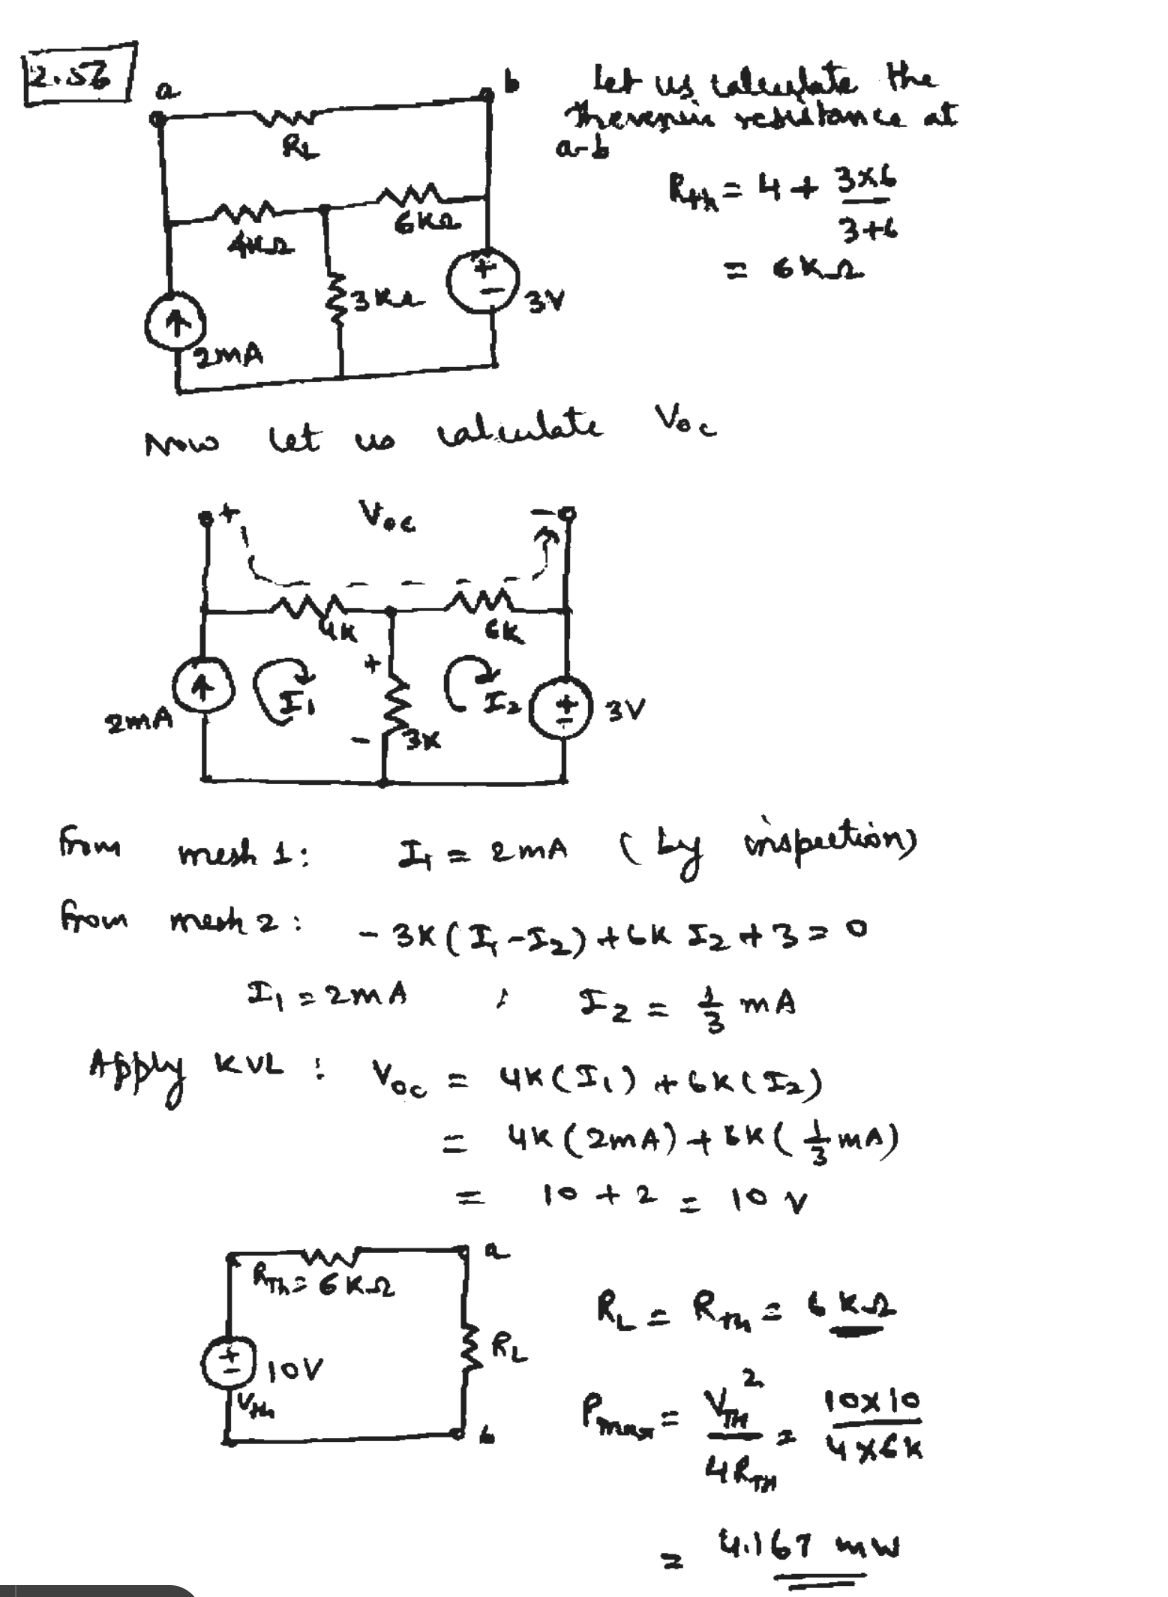 2.56
a
b
RL
4KΩ
6KΩ
3KΩ
+
−
3V
2mA
Let us calculate the
Thevenin resistance at
a-b
Rth = 4 + 3×6
3+6
= 6KΩ
Now let us calculate Voc
+ Voc −
4K
6K
+
I1
I2
+
−
3V
2mA
−
3K
From mesh 1: I1 = 2mA (by inspection)
From mesh 2: -3K(I1-I2)+6K I2+3=0
I1 = 2mA ; I2 = 1/3 mA
Apply KVL : Voc = 4K(I1)+6K(I2)
= 4K(2mA)+6K(1/3 mA)
= 10 + 2 = 10 V
a
RTh = 6KΩ
+
−
10V
Vth
RL
b
RL = Rth = 6KΩ
Pmax = VTH² / 4RTH = 10×10 / 4×6K
= 4.167 mW